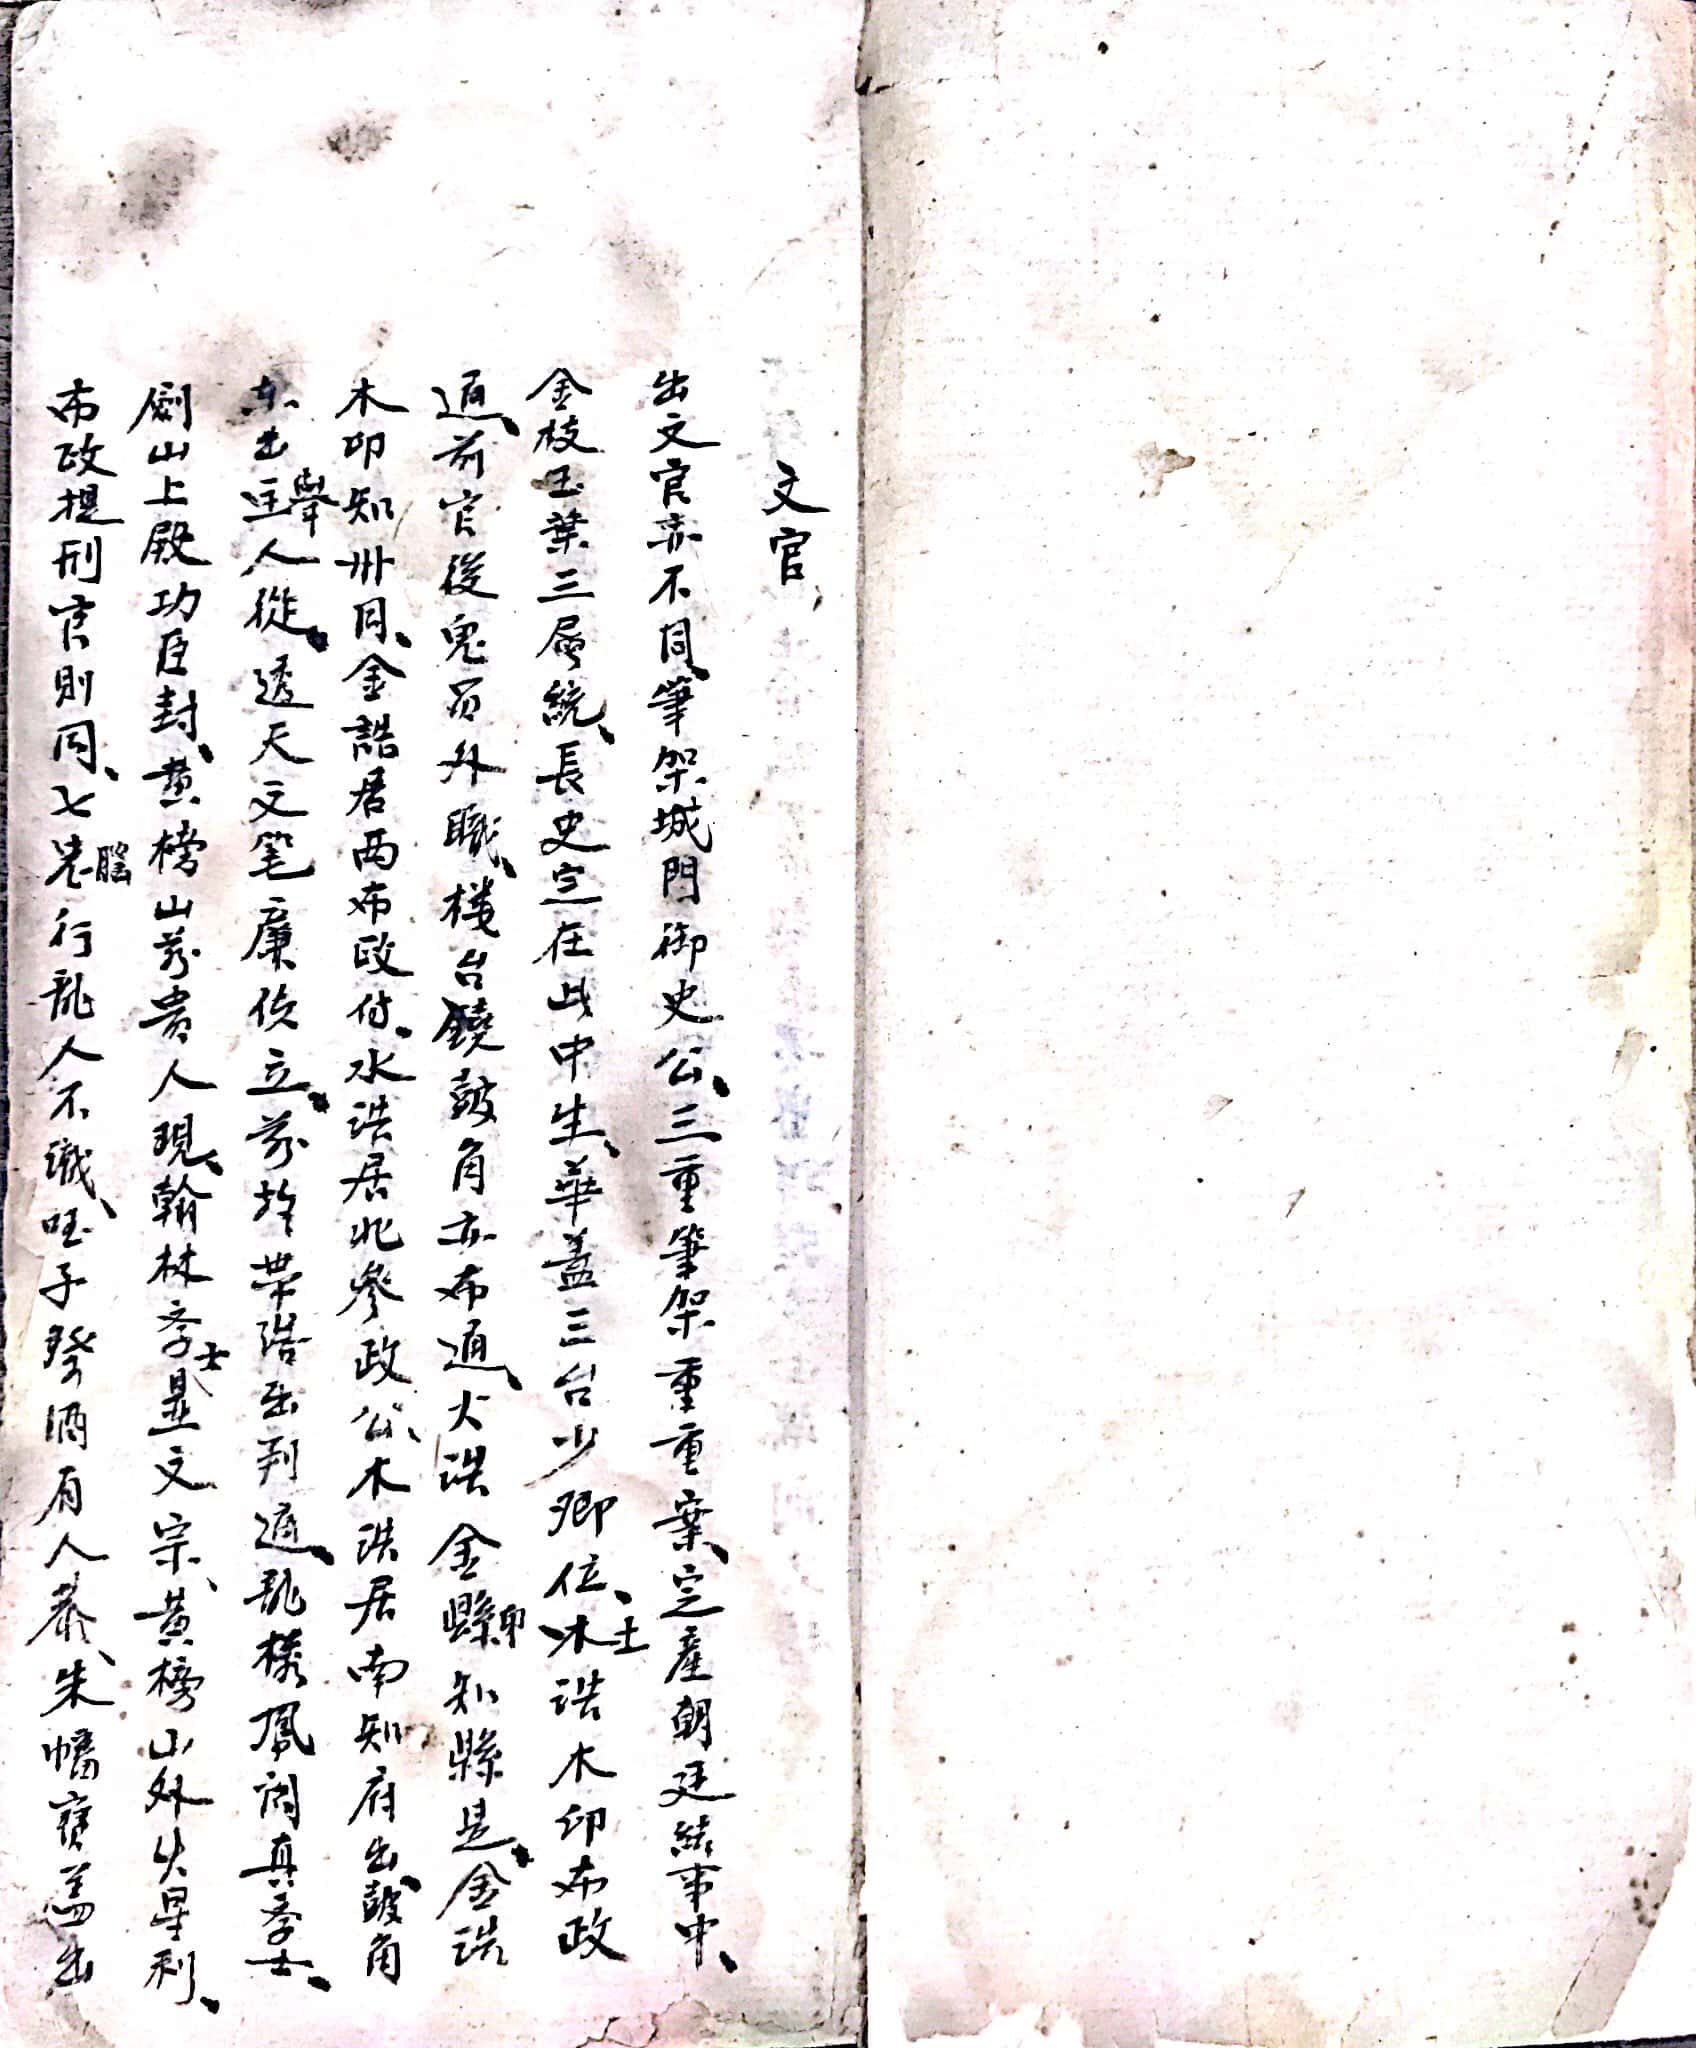 文官
出文官亦不同、筆架城門御史公、三重筆架重重案、定產朝廷給事中、
金枝玉葉三層統、長史定在此中生、華蓋三台少卿位、木土誥木印布政
通、前官後鬼員外職、樓台鐃鼓角亦布通、火誥金縣印知縣是、金誥
木印知州同、金誥居西布政付、水誥居北參政公、木誥居南知府出、鼓角
東出舉人從、透天文笔廉侦立、旂帶誥出判通、龍樣鳳閣真斈士、
劍山上殿功臣封、黄榜山前貴人現、翰林斈士是文宗、黄榜山外火星利、
布政提刑官則同、七腦行龍人不識、旺子發酒有人恭、朱幡寶蓋出